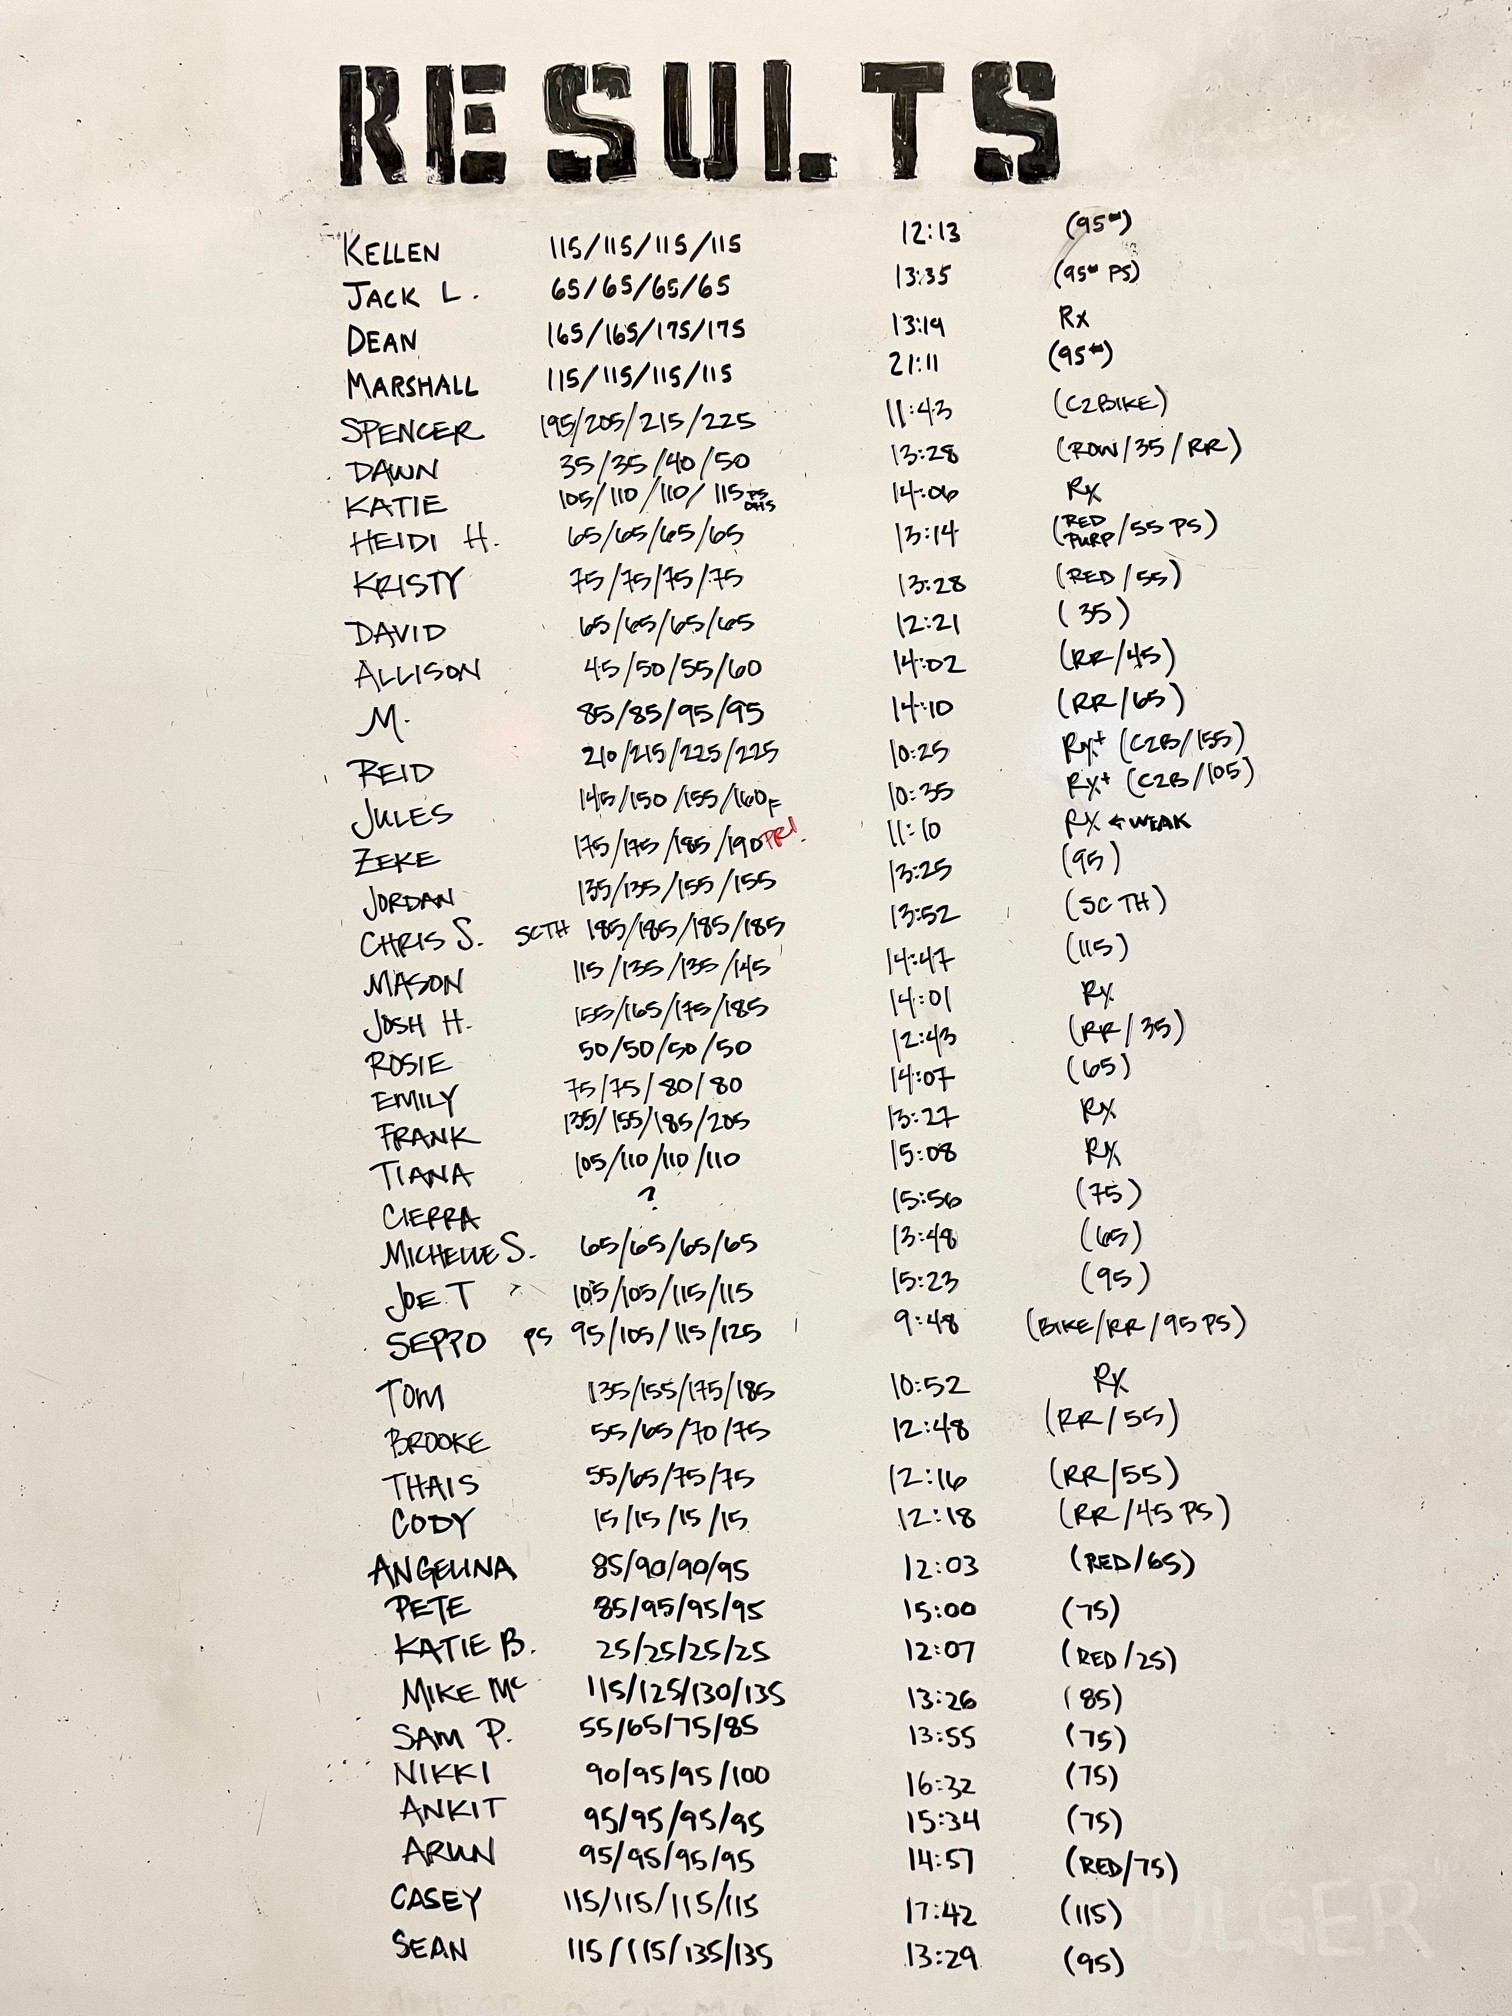 RESULTS
KELLEN 115/115/115/115 12:13 (95#)
JACK L. 65/65/65/65 13:35 (95# PS)
DEAN 165/165/175/175 13:19 Rx
MARSHALL 115/115/115/115 21:11 (95#)
SPENCER 195/205/215/225 11:43 (C2BIKE)
DAWN 35/35/40/50 13:28 (ROW/35/RR)
KATIE 105/110/110/115 PS OHS 14:06 Rx
HEIDI H. 65/65/65/65 13:14 (RED PURP/55 PS)
KRISTY 75/75/75/75 13:28 (RED/55)
DAVID 65/65/65/65 12:21 (35)
ALLISON 45/50/55/60 14:02 (RR/45)
M. 85/85/95/95 14:10 (RR/65)
REID 210/215/225/225 10:25 Rx+ (C2B/155)
JULES 145/150/155/160F 10:35 Rx+ (C2B/105)
ZEKE 175/175/185/190 PR! 11:10 Rx ← WEAK
JORDAN 135/135/155/155 13:25 (95)
CHRIS S. SCTH 185/185/185/185 13:52 (SCTH)
MASON 115/135/135/145 14:47 (115)
JOSH H. 155/165/175/185 14:01 Rx
ROSIE 50/50/50/50 12:43 (RR/35)
EMILY 75/75/80/80 14:07 (65)
FRANK 135/155/185/205 13:27 Rx
TIANA 105/110/110/110 15:08 Rx
CIERRA ? 15:56 (75)
MICHELLE S. 65/65/65/65 13:48 (65)
JOE T 105/105/115/115 15:23 (95)
SEPPO PS 95/105/115/125 9:48 (BIKE/RR/95 PS)
TOM 135/155/175/185 10:52 Rx
BROOKE 55/65/70/75 12:48 (RR/55)
THAIS 55/65/75/75 12:16 (RR/55)
CODY 15/15/15/15 12:18 (RR/45 PS)
ANGELINA 85/90/90/95 12:03 (RED/65)
PETE 85/95/95/95 15:00 (75)
KATIE B. 25/25/25/25 12:07 (RED/25)
MIKE Mc 115/125/130/135 13:26 (85)
SAM P. 55/65/75/85 13:55 (75)
NIKKI 90/95/95/100 16:32 (75)
ANKIT 95/95/95/95 15:34 (75)
ARUN 95/95/95/95 14:57 (RED/75)
CASEY 115/115/115/115 17:42 (115)
SEAN 115/115/135/135 13:29 (95)